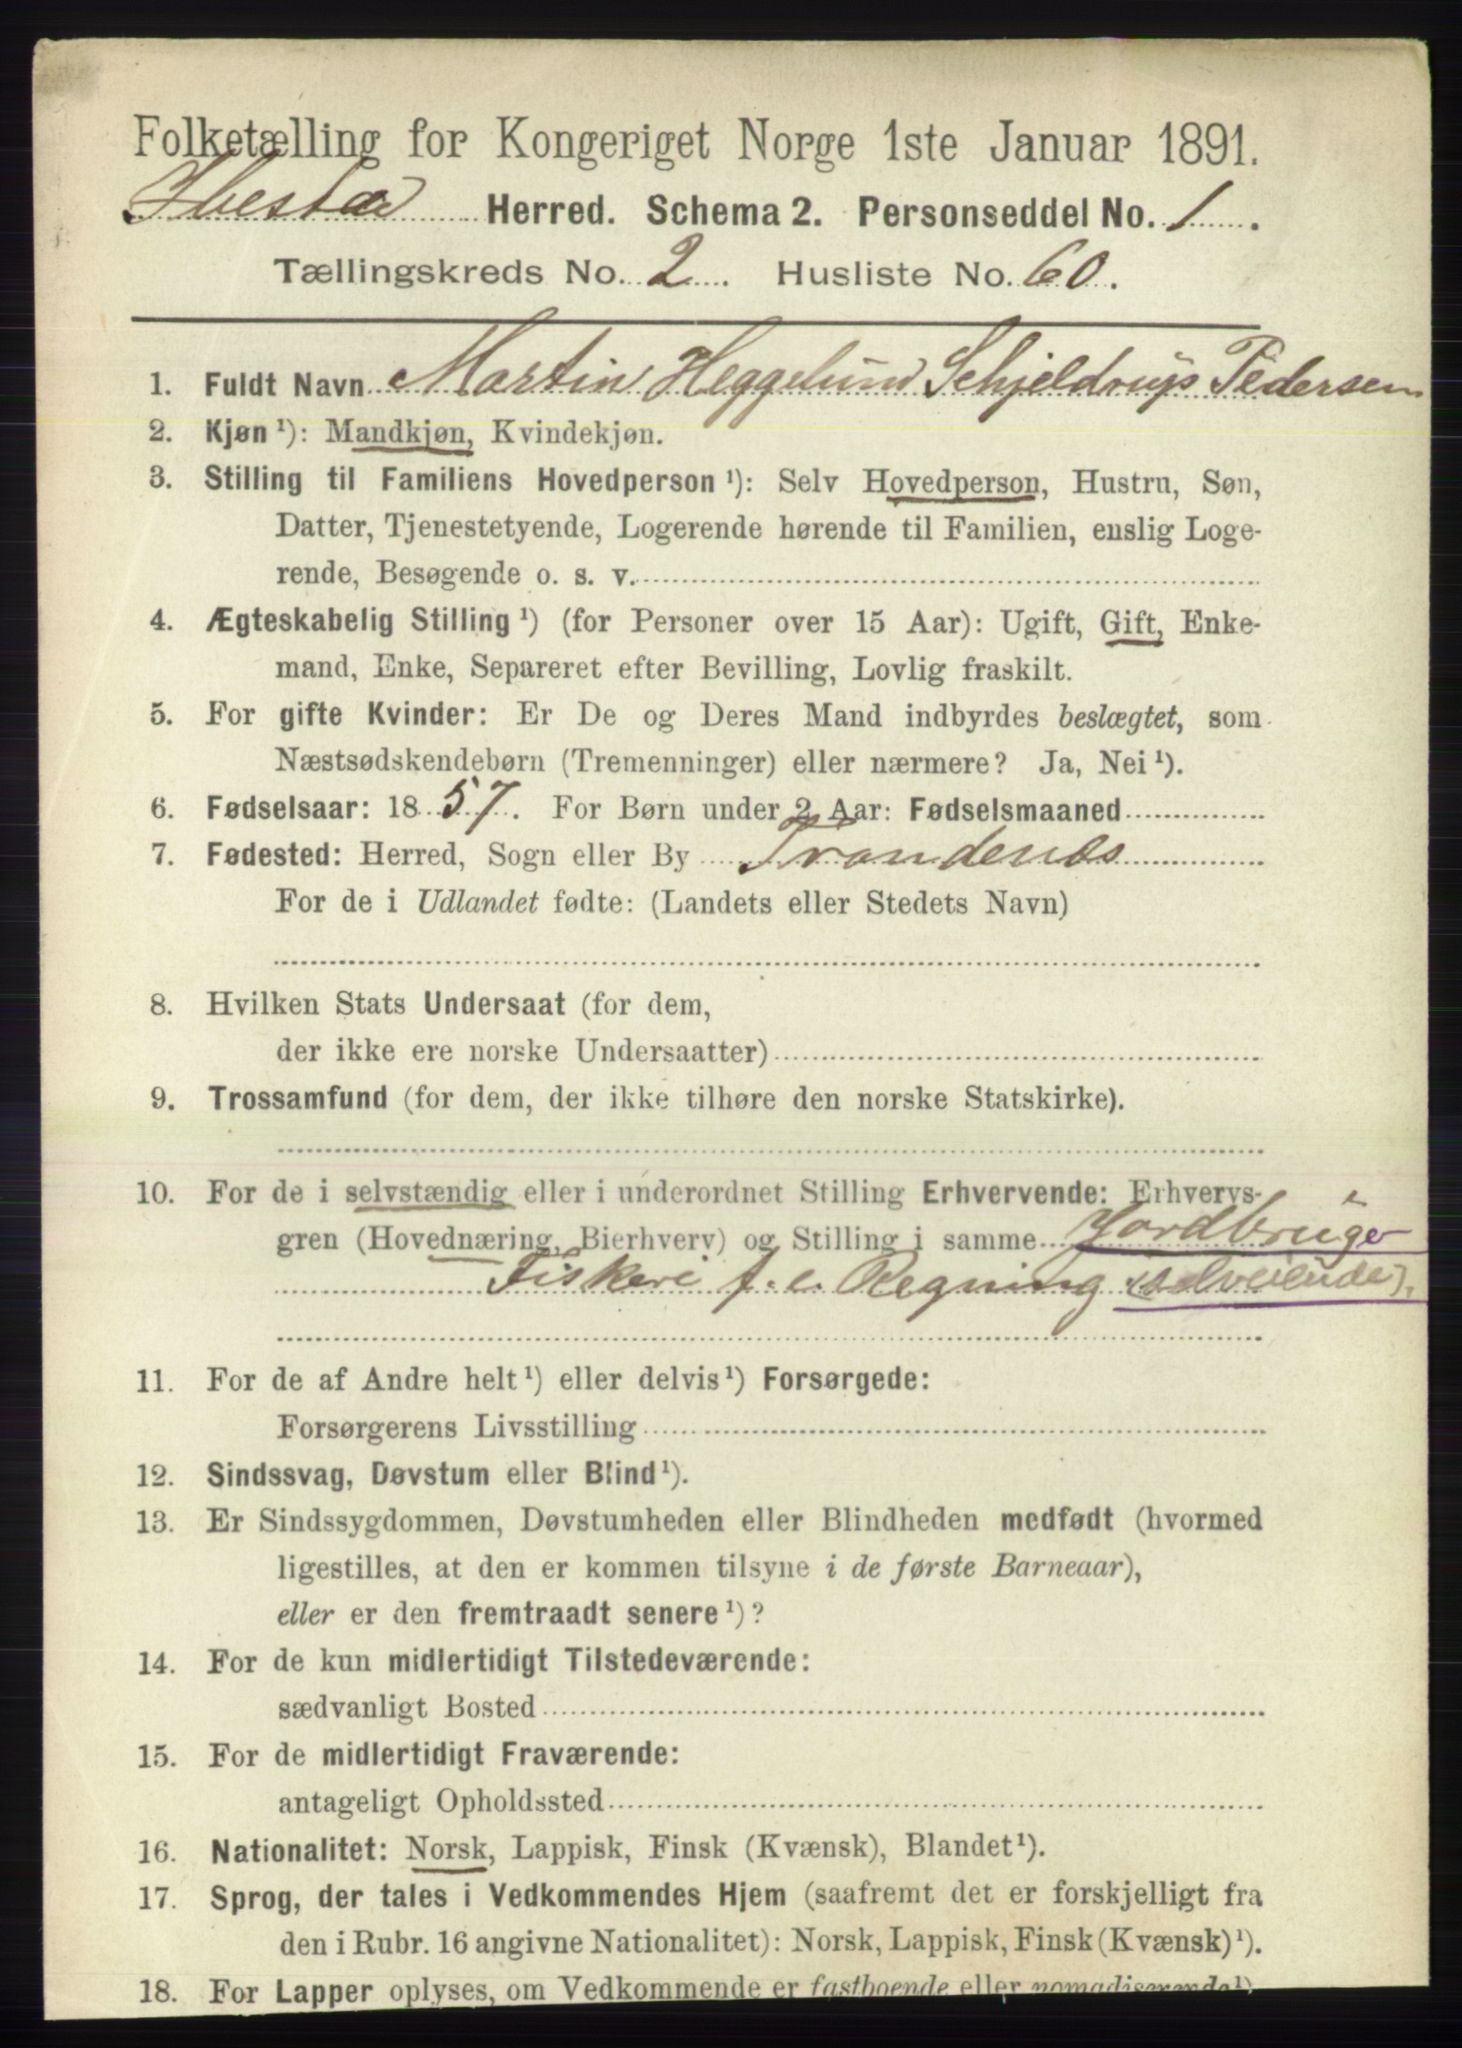 Folketælling for Kongeriget Norge 1ste Januar 1891.
Ibestad Herred. Schema 2. Personseddel No. 1.
Tællingskreds No. 2. Husliste No. 60.
1. Fuldt Navn Martin Heggelund Schjeldrup Pedersen
2. Kjøn ¹): Mandkjøn, Kvindekjøn.
3. Stilling til Familiens Hovedperson ¹): Selv Hovedperson, Hustru, Søn,
Datter, Tjenestetyende, Logerende hørende til Familien, enslig Loge-
rende, Besøgende o. s. v.
4. Ægteskabelig Stilling ¹) (for Personer over 15 Aar): Ugift, Gift, Enke-
mand, Enke, Separeret efter Bevilling, Lovlig fraskilt.
5. For gifte Kvinder: Er De og Deres Mand indbyrdes beslægtet, som
Næstsødskendebørn (Tremenninger) eller nærmere? Ja, Nei ¹).
6. Fødselsaar: 1857. For Børn under 2 Aar: Fødselsmaaned
7. Fødested: Herred, Sogn eller By Trondenæs
For de i Udlandet fødte: (Landets eller Stedets Navn)
8. Hvilken Stats Undersaat (for dem,
der ikke ere norske Undersaatter)
9. Trossamfund (for dem, der ikke tilhøre den norske Statskirke).
10. For de i selvstændig eller i underordnet Stilling Erhvervende: Erhvervs-
gren (Hovednæring, Bierhverv) og Stilling i samme Jordbruger
Fiskeri f. e. Regning (selveiende).
11. For de af Andre helt ¹) eller delvis ¹) Forsørgede:
Forsørgerens Livsstilling
12. Sindssvag, Døvstum eller Blind ¹).
13. Er Sindssygdommen, Døvstumheden eller Blindheden medfødt (hvormed
ligestilles, at den er kommen tilsyne i de første Barneaar),
eller er den fremtraadt senere ¹)?
14. For de kun midlertidigt Tilstedeværende:
sædvanligt Bosted
15. For de midlertidigt Fraværende:
antageligt Opholdssted
16. Nationalitet: Norsk, Lappisk, Finsk (Kvænsk), Blandet ¹).
17. Sprog, der tales i Vedkommendes Hjem (saafremt det er forskjelligt fra
den i Rubr. 16 angivne Nationalitet): Norsk, Lappisk, Finsk (Kvænsk) ¹).
18. For Lapper oplyses, om Vedkommende er fastboende eller nomadiserende ¹).